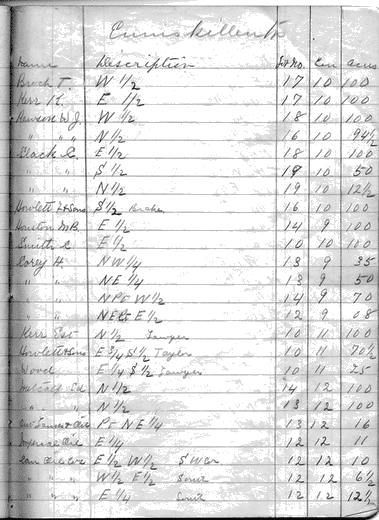 Enniskillen
Name Description Lot No. Con Acres
Brock T. W 1/2 17 10 100
Kerr E 1/2 17 10 100
W J. W 1/2 18 10 100
" " " N 1/2 16 10 94 1/2
Slack E 1/2 18 10 100
" " S 1/2 19 10 50
" " N 1/2 19 10 12 1/2
Howlett & Sons S 1/2 16 10 100
Houston E 1/2 14 9 100
Smith E 1/2 10 10 100
Corey H. NW 1/4 13 9 35
" " NE 1/4 13 9 50
" " W 1/2 14 9 70
" " E 1/2 12 9 08
Kerr Est N 1/2 Lawyer 10 11 100
Howlett & Sons E 3/4 S 1/2 Taylor 10 11 70 1/2
Wood E 1/4 S 1/2 Lawyer 10 11 25
Metcalf Ed N 1/2 14 12 100
" " N 1/2 13 12 100
NE 1/4 13 12 16
Imperial Oil E 1/4 12 12 11
E 1/2 W 1/2 12 12 10
" " " W 1/2 E 1/2 12 12 6 1/2
" " " E 1/4 12 12 12 1/2